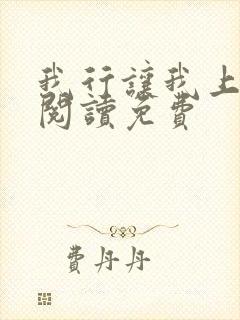 我行讓我上
閱讀免費
費丹丹